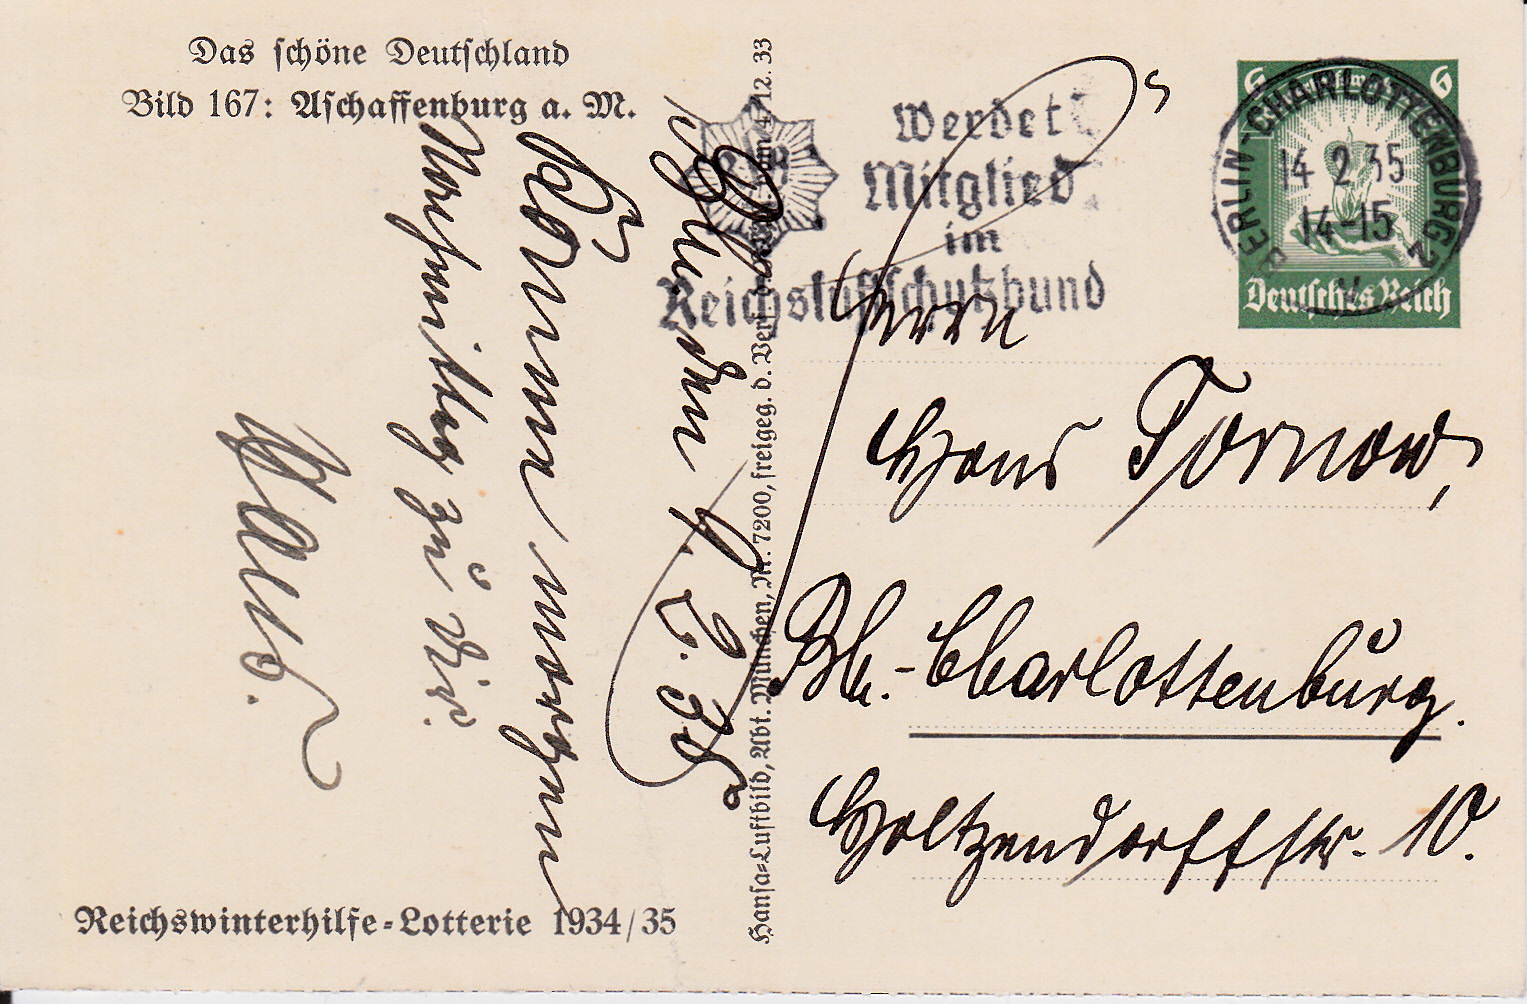 Das schöne Deutschland
Bild 167: Aschaffenburg a. M.
Komme morgen
Nachmittag zu Dir.
Reichswinterhilfe-Lotterie 1934/35
Hansa-Luftbild, Abt. München, Nr. 7200, freigeg. d. Verf. d. vom 4. 12. 33
Werdet
Mitglied
im
Reichsluftschutzbund
6 6
Deutsches Reich
BERLIN-CHARLOTTENBURG 2
14 2 35
14-15
Herrn
Hans Tornow,
Bln.-Charlottenburg.
Holtzendorffstr. 10.